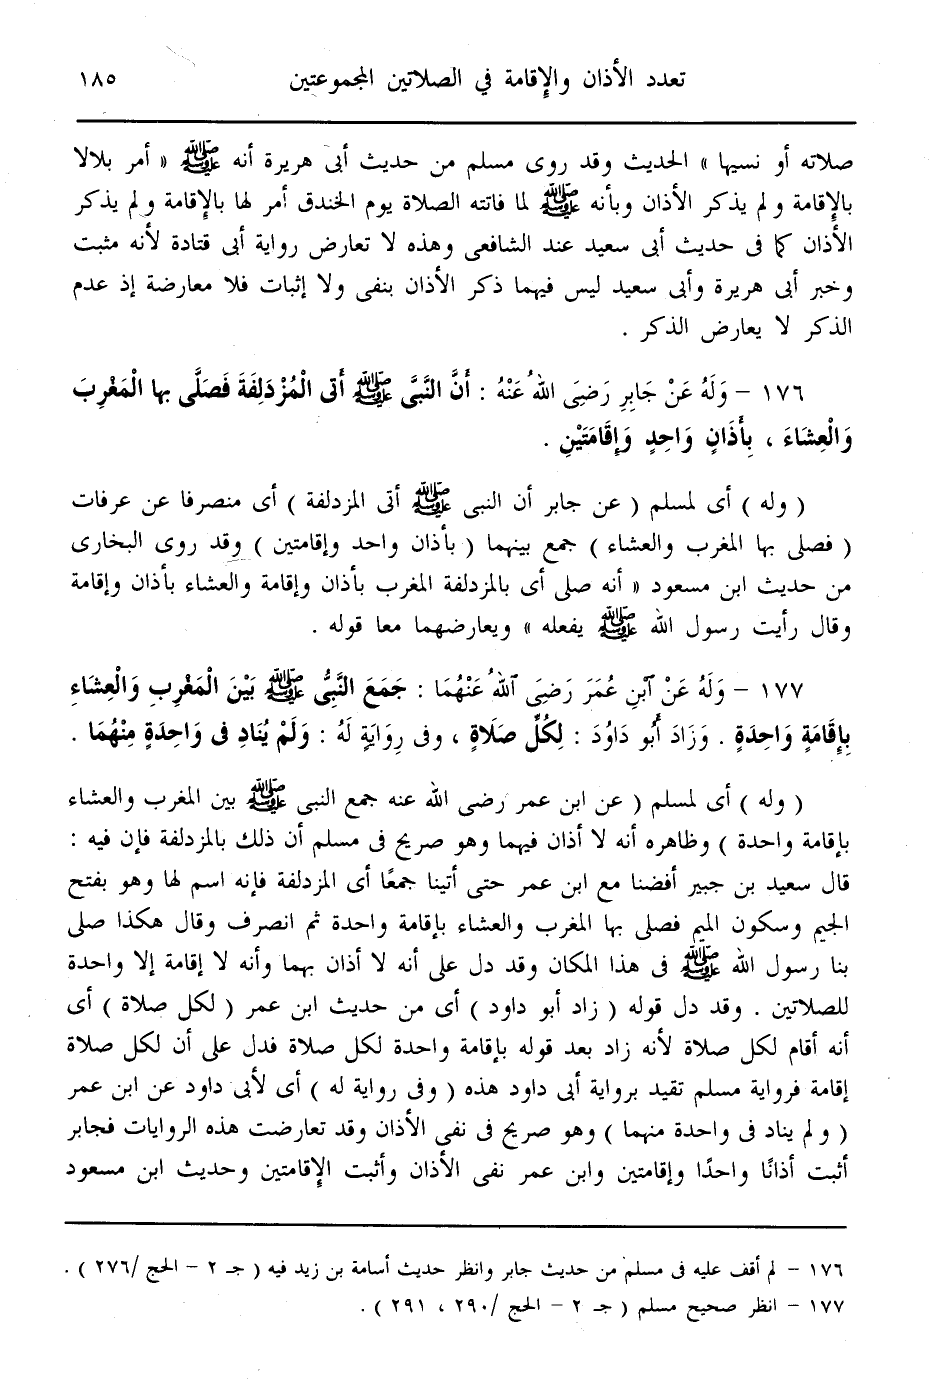 تعدد الأذان والإقامة في الصلاتين المجموعتين ١٨٥
صلاته أو نسيها » الحديث وقد روى مسلم من حديث أبى هريرة أنه ﷺ « أمر بلالا
بالإقامة ولم يذكر الأذان وبأنه ﷺ لما فاتته الصلاة يوم الخندق أمر لها بالإقامة ولم يذكر
الأذان كما فى حديث أبى سعيد عند الشافعى وهذه لا تعارض رواية أبى قتادة لأنه مثبت
وخبر أبى هريرة وأبى سعيد ليس فيهما ذكر الأذان بنفى ولا إثبات فلا معارضة إذ عدم
الذكر لا يعارض الذكر .
١٧٦ – وَلَهُ عَنْ جَابِرٍ رَضِىَ اللهُ عَنْهُ : أَنَّ النَّبِىَّ ﷺ أَتَى الْمُزْدَلِفَةَ فَصَلَّى بها الْمَغْرِبَ
وَالْعِشَاءَ ، بِأَذَانٍ وَاحِدٍ وَإِقَامَتَيْنِ .
( وله ) أى لمسلم ( عن جابر أن النبى ﷺ أتى المزدلفة ) أى منصرفا عن عرفات
( فصلى بها المغرب والعشاء ) جمع بينهما ( بأذان واحد وإقامتين ) وقد روى البخارى
من حديث ابن مسعود « أنه صلى أى بالمزدلفة المغرب بأذان وإقامة والعشاء بأذان وإقامة
وقال رأيت رسول الله ﷺ يفعله » ويعارضهما معا قوله .
١٧٧ – وَلَهُ عَنْ ٱبْنِ عُمَرَ رَضِىَ ٱللهُ عَنْهُمَا : جَمَعَ النَّبِىُّ ﷺ بَيْنَ الْمَغْرِبِ وَالْعِشَاءِ
بِإِقَامَةٍ وَاحِدَةٍ . وَزَادَ أَبُو دَاوُدَ : لِكُلِّ صَلَاةٍ ، وفى رِوَايَةٍ لَهُ : وَلَمْ يُنَادِ فى وَاحِدَةٍ مِنْهُمَا .
( وله ) أى لمسلم ( عن ابن عمر رضى الله عنه جمع النبى ﷺ بين المغرب والعشاء
بإقامة واحدة ) وظاهره أنه لا أذان فيهما وهو صريح فى مسلم أن ذلك بالمزدلفة فإن فيه :
قال سعيد بن جبير أفضنا مع ابن عمر حتى أتينا جمعًا أى المزدلفة فإنه اسم لها وهو بفتح
الجيم وسكون الميم فصلى بها المغرب والعشاء بإقامة واحدة ثم انصرف وقال هكذا صلى
بنا رسول الله ﷺ فى هذا المكان وقد دل على أنه لا أذان بهما وأنه لا إقامة إلا واحدة
للصلاتين . وقد دل قوله ( زاد أبو داود ) أى من حديث ابن عمر ( لكل صلاة ) أى
أنه أقام لكل صلاة لأنه زاد بعد قوله بإقامة واحدة لكل صلاة فدل على أن لكل صلاة
إقامة فرواية مسلم تقيد برواية أبى داود هذه ( وفى رواية له ) أى لأبى داود عن ابن عمر
( ولم يناد فى واحدة منهما ) وهو صريح فى نفى الأذان وقد تعارضت هذه الروايات فجابر
أثبت أذانًا واحدًا وإقامتين وابن عمر نفى الأذان وأثبت الإقامتين وحديث ابن مسعود
١٧٦ – لم أقف عليه فى مسلم من حديث جابر وانظر حديث أسامة بن زيد فيه ( جـ ٢ – الحج /٢٧٦ ) .
١٧٧ – انظر صحيح مسلم ( جـ ٢ – الحج /٢٩٠ ، ٢٩١ ) .